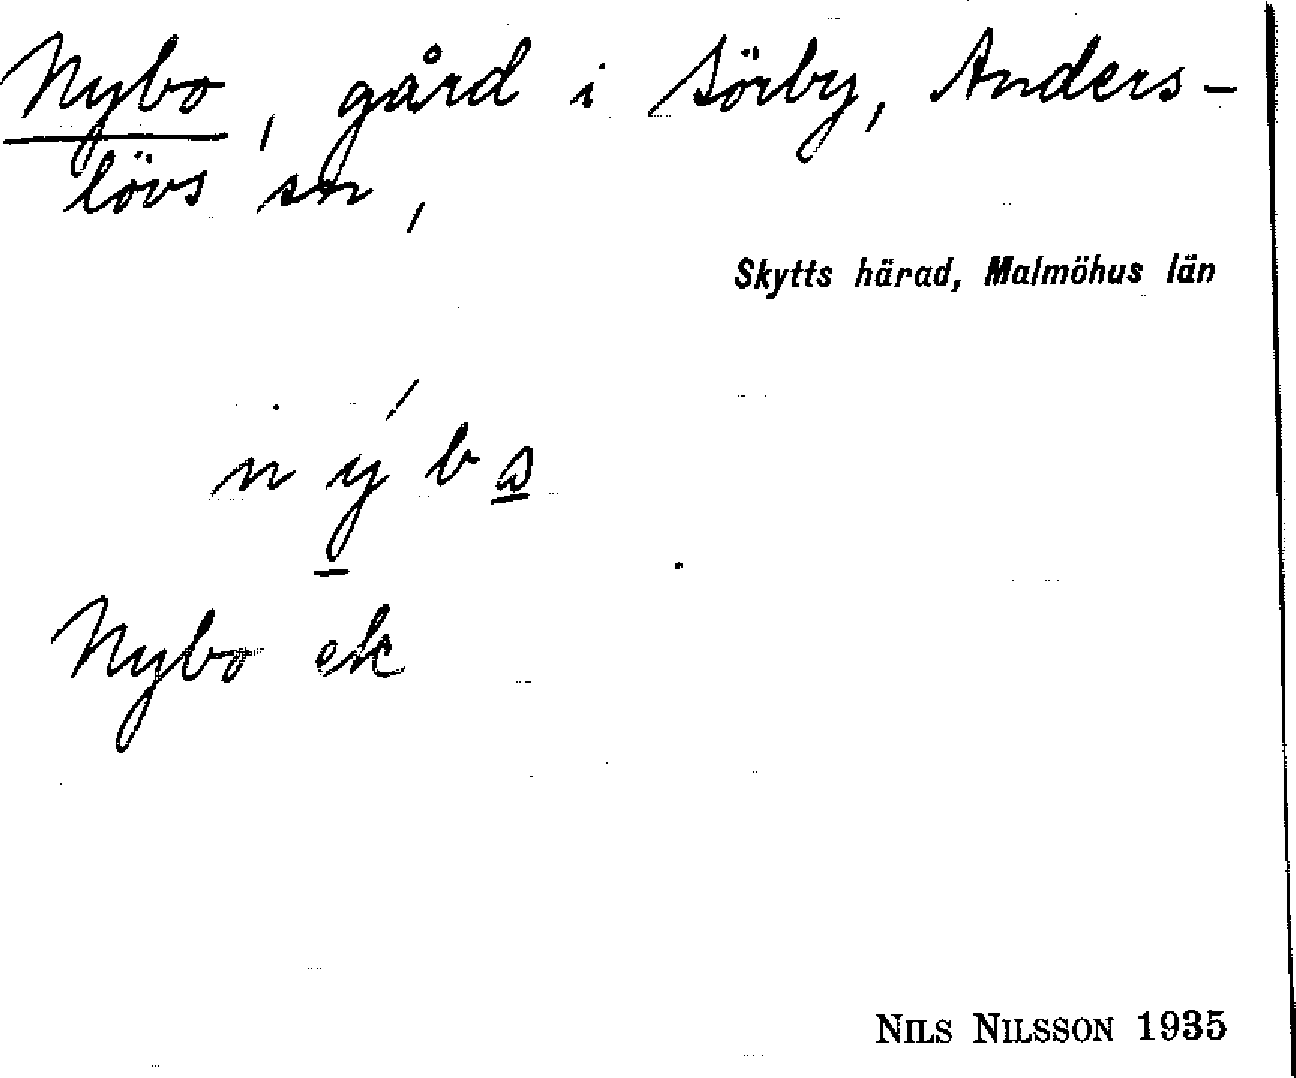 Nybo, gård i Sörby, Anders-
lövs sn,
Skytts härad, Malmöhus län
Nybo ek
NILS NILSSON 1935